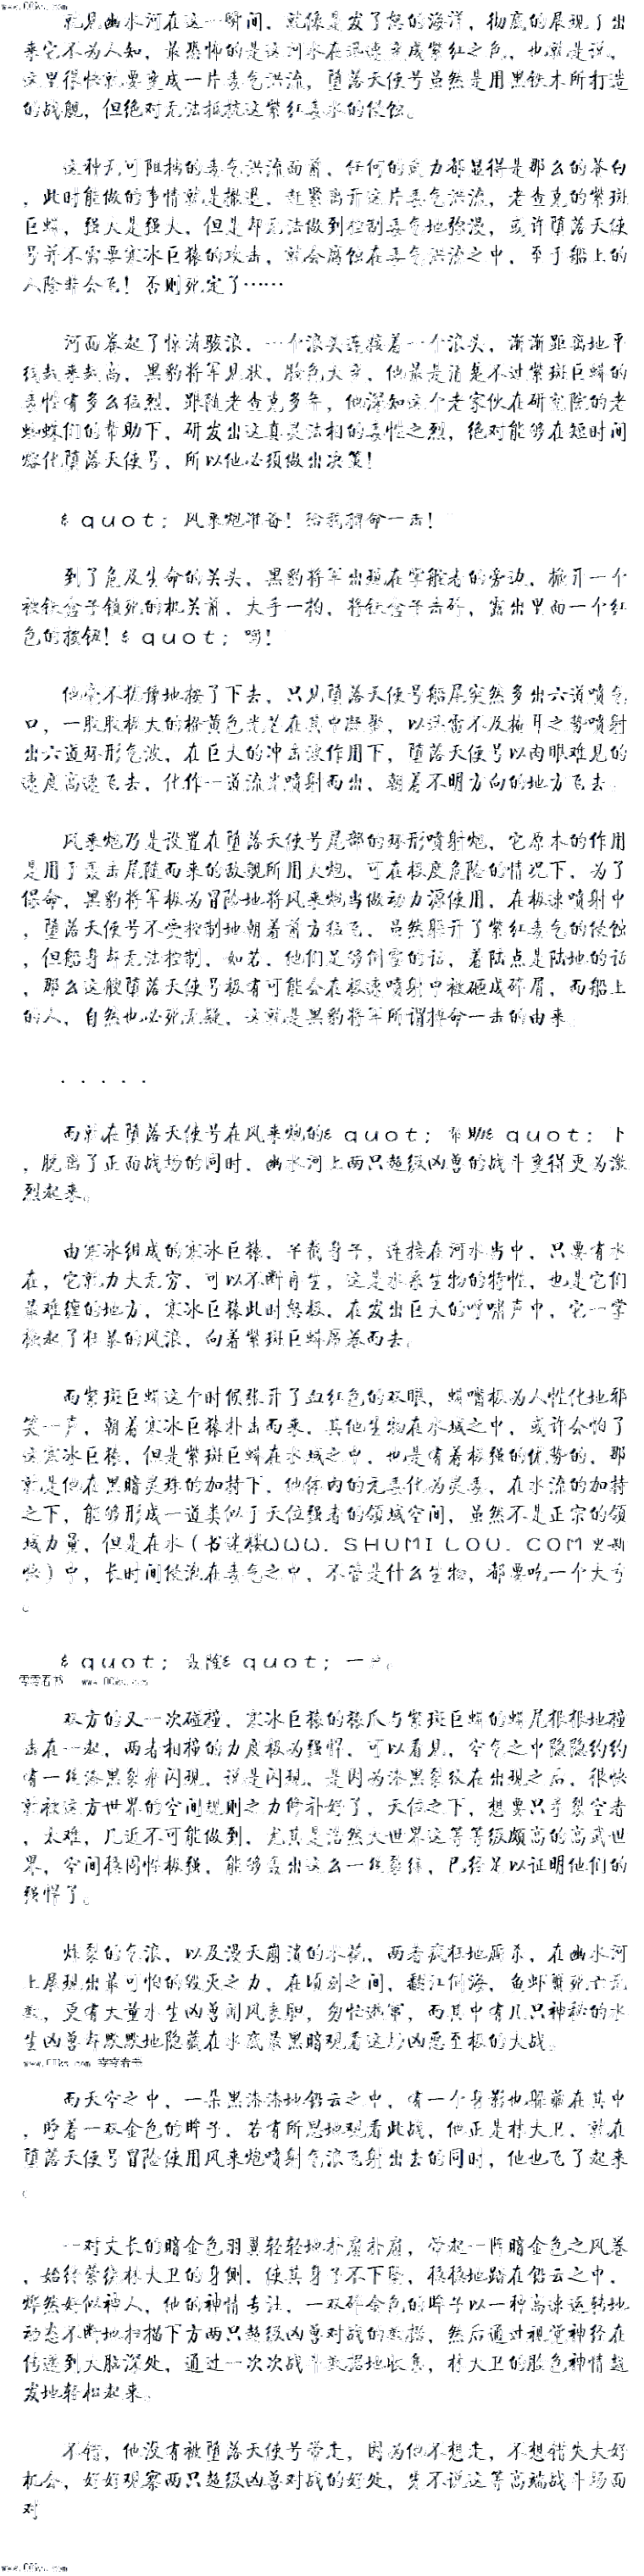 www.00ks.com
就见幽水河在这一瞬间，就像是发了怒的海洋，彻底的展现了出
来它不为人知，最恐怖的是这河水在迅速变成紫红之色，也就是说，
这里很快就要变成一片毒气洪流，堕落天使号虽然是用黑铁木所打造
的战舰，但绝对无法抵抗这紫红毒水的侵蚀。
这种无可阻挡的毒气洪流面前，任何的武力都显得是那么的苍白
，此时能做的事情就是撤退，赶紧离开这片毒气洪流，老查克的紫斑
巨蟒，强大是强大，但是却无法做到控制毒气地弥漫，或许堕落天使
号并不需要寒冰巨猿的攻击，就会腐蚀在毒气洪流之中，至于船上的
人除非会飞！否则死定了……
河面卷起了惊涛骇浪，一个浪头连接着一个浪头，渐渐距离地平
线越来越高，黑豹将军见状，脸色大变，他最是清楚不过紫斑巨蟒的
毒性有多么猛烈，跟随老查克多年，他深知这个老家伙在研究院的老
蜘蛛们的帮助下，研发出这真灵法相的毒性之烈，绝对能够在短时间
熔化堕落天使号，所以他必须做出决策！
&quot;风来炮准备！给我拼命一击！
到了危及生命的关头，黑豹将军出现在掌舵者的旁边，掀开一个
被铁盒子锁死的机关前，大手一拘，将铁盒子击碎，露出里面一个红
色的按钮！&quot;啊！
他毫不犹豫地按了下去，只见堕落天使号船尾突然多出六道喷气
口，一股股极大的橙黄色光芒在其中凝聚，以迅雷不及掩耳之势喷射
出六道环形气波，在巨大的冲击波作用下，堕落天使号以肉眼难见的
速度高速飞去，化作一道流光喷射而出，朝着不明方向的地方飞去。
风来炮乃是设置在堕落天使号尾部的环形喷射炮，它原本的作用
是用于轰击尾随而来的敌舰所用大炮，可在极度危险的情况下，为了
保命，黑豹将军极为冒险地将风来炮当做动力源使用，在极速喷射中
，堕落天使号不受控制地朝着前方猛飞，虽然躲开了紫红毒气的侵蚀
，但船身却无法控制，如若，他们足够倒霉的话，着陆点是陆地的话
，那么这艘堕落天使号极有可能会在极速喷射中被砸成碎屑，而船上
的人，自然也必死无疑，这就是黑豹将军所谓拼命一击的由来。
．．．．．
而就在堕落天使号在风来炮的&quot;帮助&quot;下
，脱离了正面战场的同时，幽水河上两只超级凶兽的战斗变得更为激
烈起来。
由寒冰组成的寒冰巨猿，半截身子，连接在河水当中，只要有水
在，它就力大无穷，可以不断再生，这是水系生物的特性，也是它们
最难缠的地方，寒冰巨猿此时怒极，在发出巨大的呼啸声中，它一掌
掀起了狂暴的风浪，向着紫斑巨蟒席卷而去。
而紫斑巨蟒这个时候张开了血红色的双眼，蟒嘴极为人性化地邪
笑一声，朝着寒冰巨猿扑击而来，其他生物在水域之中，或许会怕了
这寒冰巨猿，但是紫斑巨蟒在水域之中，也是有着极强的优势的，那
就是他在黑暗灵珠的加持下，他体内的元毒化为灵毒，在水流的加持
之下，能够形成一道类似于天位强者的领域空间，虽然不是正宗的领
域力量，但是在水（书迷楼ＷＷＷ．ＳＨＵＭＩＬＯＵ．ＣＯＭ更新
快）中，长时间浸泡在毒气之中，不管是什么生物，都要吃一个大亏
。
&quot;轰隆&quot;一声。
零零看书 www.00ks.com
双方的又一次碰撞，寒冰巨猿的猿爪与紫斑巨蟒的蟒尾狠狠地撞
击在一起，两者相撞的力度极为强悍，可以看见，空气之中隐隐约约
有一丝漆黑裂痕闪现，说是闪现，是因为漆黑裂纹在出现之后，很快
就被这方世界的空间规则之力修补好了，天位之下，想要只手裂空者
，太难，几近不可能做到，尤其是浩然大世界这等等级颇高的高武世
界，空间稳固性极强，能够轰出这么一丝裂缝，已经足以证明他们的
强悍了。
炸裂的气浪，以及漫天崩溃的水花，两者疯狂地厮杀，在幽水河
上展现出最可怕的毁灭之力，在顷刻之间，翻江倒海，鱼虾蟹死亡无
数，更有大量水生凶兽闻风丧胆，匆忙逃窜，而其中有几只神秘的水
生凶兽却默默地隐藏在水底最黑暗观看这场凶恶至极的大战。
www.00ks.com 零零看书
而天空之中，一朵黑漆漆地铅云之中，有一个身影也躲藏在其中
，睁着一双金色的眸子，若有所思地观看此战，他正是林大卫，就在
堕落天使号冒险使用风来炮喷射气浪飞射出去的同时，他也飞了起来
。
一对丈长的暗金色羽翼轻轻地扑扇扑扇，带起一阵暗金色之风卷
，始终萦绕林大卫的身侧，使其身子不下坠，稳稳地踏在铅云之中，
俨然好似神人，他的神情专注，一双碎金色的眸子以一种高速运转地
动态不断地扫描下方两只超级凶兽对战的数据，然后通过视觉神经在
传递到大脑深处，通过一次次战斗数据地收集，林大卫的脸色神情越
发地轻松起来。
不错，他没有被堕落天使号带走，因为他不想走，不想错失大好
机会，好好观察两只超级凶兽对战的好处，先不说这等高端战斗场面
对
www.00ks.com